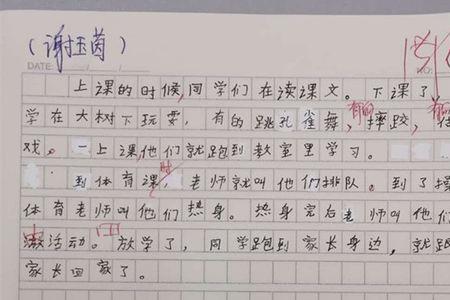 (谢玉茵)
DATE: / /
NO:
上课的时候,同学们在读课文。下课了
学在大树下玩耍,有的跳孔雀舞,有的摔跤,有的
戏。一上课,他们就跑到教室里学习。
到体育课时,老师就叫他们排队。到了操
体育老师叫他们热身。热身完后老师叫他们
活动。放学了,同学跑到家长身边,就跟
家长回家了。